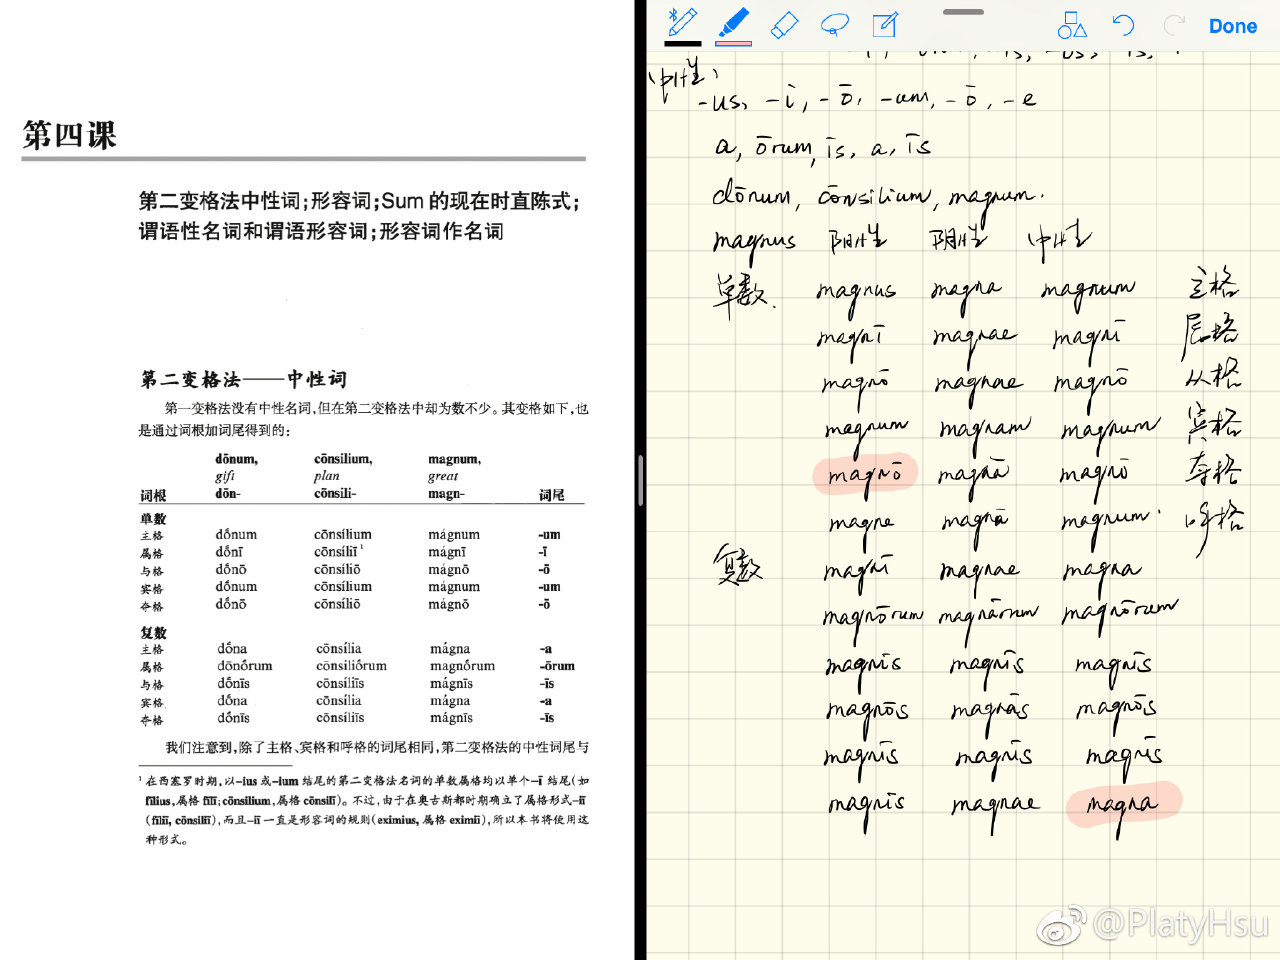 第四课
第二变格法中性词;形容词;Sum 的现在时直陈式;
谓语性名词和谓语形容词;形容词作名词
第二变格法——中性词
第一变格法没有中性名词,但在第二变格法中却为数不少。其变格如下,也
是通过词根加词尾得到的:
dōnum, cōnsilium, magnum,
gift plan great
词根 dōn- cōnsili- magn- 词尾
单数
主格 dṓnum cōnsílium mágnum -um
属格 dṓnī cōnsíliī¹ mágnī -ī
与格 dṓnō cōnsíliō mágnō -ō
宾格 dṓnum cōnsílium mágnum -um
夺格 dṓnō cōnsíliō mágnō -ō
复数
主格 dṓna cōnsília mágna -a
属格 dōnṓrum cōnsiliṓrum magnṓrum -ōrum
与格 dṓnīs cōnsíliīs mágnīs -īs
宾格 dṓna cōnsília mágna -a
夺格 dṓnīs cōnsíliīs mágnīs -īs
我们注意到,除了主格、宾格和呼格的词尾相同,第二变格法的中性词尾与
¹ 在西塞罗时期,以-ius 或-ium 结尾的第二变格法名词的单数属格均以单个-ī 结尾(如
fīlius,属格 fīlī;cōnsilium,属格 cōnsilī)。不过,由于在奥古斯都时期确立了属格形式-iī
(fīliī, cōnsiliī),而且-iī 一直是形容词的规则(eximius, 属格 eximiī),所以本书将使用这
种形式。
Done
中性、
-us, -ī, -ō, -um, -ō, -e
a, ōrum, īs, a, īs
dōnum, cōnsilium, magnum.
magnus 阳性 阴性 中性
单数. magnus magna magnum 主格
magnī magnae magnī 属格
magnō magnae magnō 从格
magnum magnam magnum 宾格
magnō magnā magnō 夺格
magne magna magnum 呼格
复数 magnī magnae magna
magnōrum magnārum magnōrum
magnīs magnīs magnīs
magnōs magnās magnōs
magnīs magnīs magnīs
magnīs magnae magna
@PlatyHsu